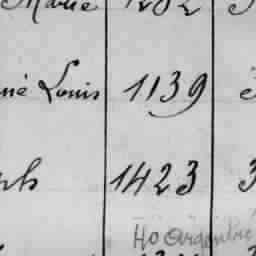 Marie 1282
né Louis 1139
ph 1423 3
Ho Argentré